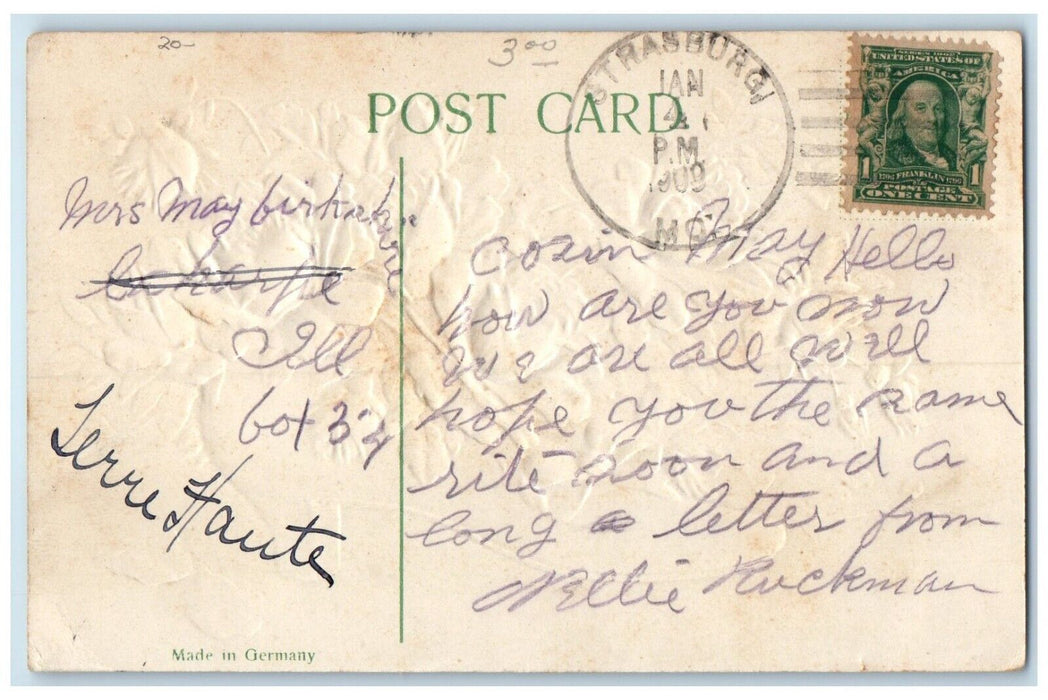 20-
3.00
POST CARD
STRASBURG,
JAN
4
P.M.
1909
MO.
SERIES 1902
UNITED STATES OF
AMERICA
1 1706 FRANKLIN 1790 1
POSTAGE
ONE CENT
Mrs May
Laharpe
Ill
box 34
Terre Haute
Cozin May Hello
how are you now
we are all well
hope you the same
rite soon and a
long letter from
Nellie Ruckman
Made in Germany